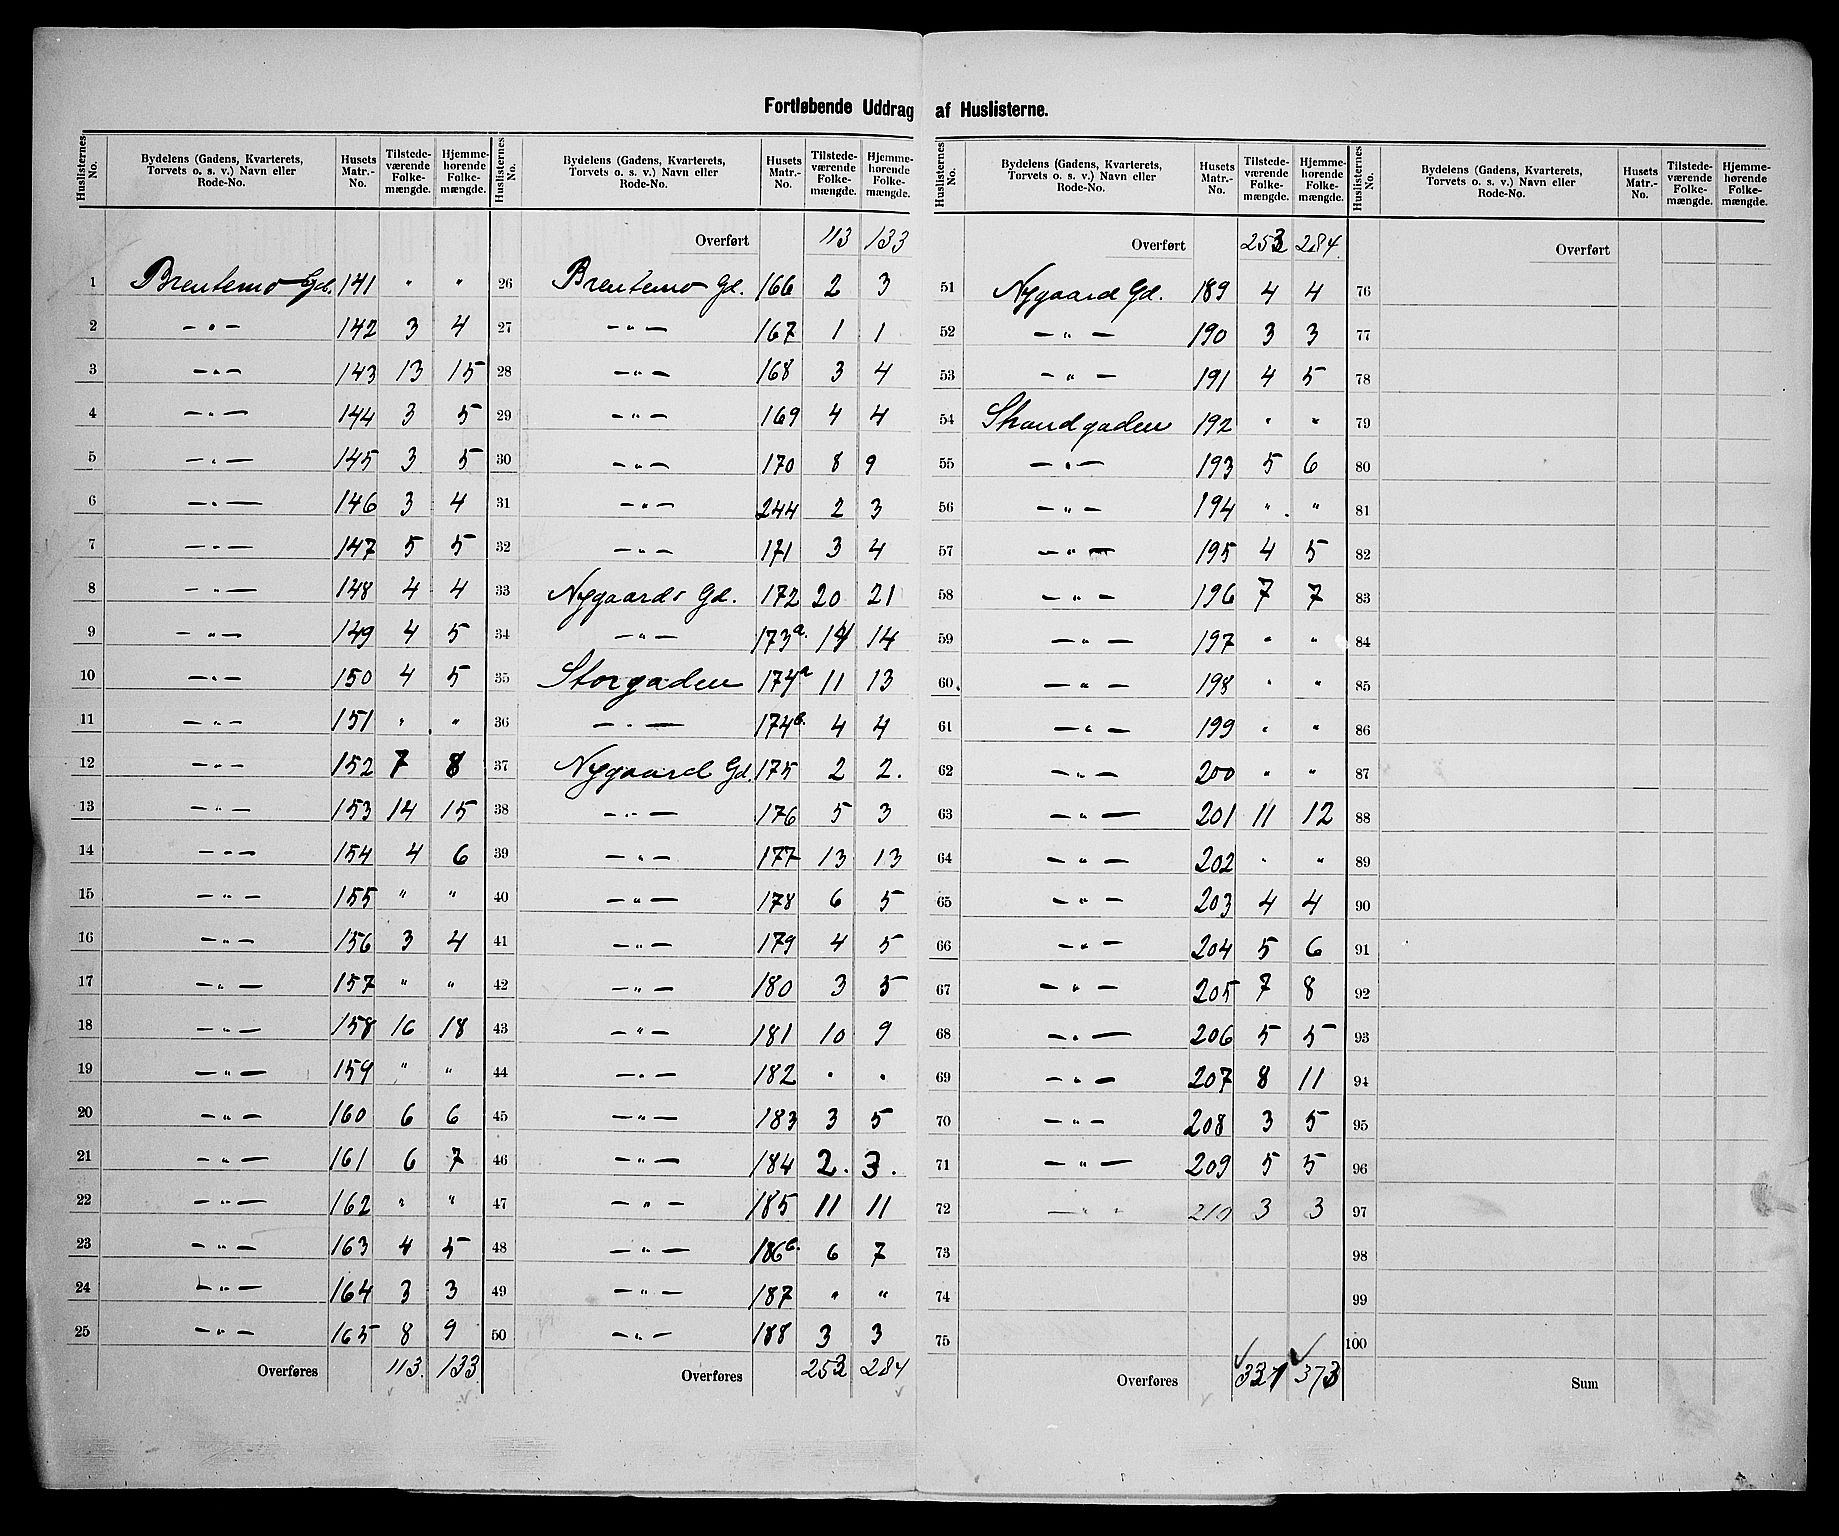 Fortløbende Uddrag af Huslisterne.
Huslisternes No. | Bydelens (Gadens, Kvarterets, Torvets o. s. v.) Navn eller Rode-No. | Husets Matr.-No. | Tilstede-værende Folke-mængde. | Hjemme-hørende Folke-mængde.
1 Brentemo Gd. 141 " "
2 — " — 142 3 4
3 — " — 143 13 15
4 — " — 144 3 5
5 — " — 145 3 5
6 — " — 146 3 4
7 — " — 147 5 5
8 — " — 148 4 4
9 — " — 149 4 5
10 — " — 150 4 5
11 — " — 151 " "
12 — " — 152 7 8
13 — " — 153 14 15
14 — " — 154 4 6
15 — " — 155 " "
16 — " — 156 3 4
17 — " — 157 " "
18 — " — 158 16 18
19 — " — 159 " "
20 — " — 160 6 6
21 — " — 161 6 7
22 — " — 162 " "
23 — " — 163 4 5
24 — " — 164 3 3
25 — " — 165 8 9
Overføres 113. 133
Huslisternes No. | Bydelens (Gadens, Kvarterets, Torvets o. s. v.) Navn eller Rode-No. | Husets Matr.-No. | Tilstede-værende Folke-mængde. | Hjemme-hørende Folke-mængde.
Overført 113 133
26 Brentemo Gd. 166 2 3
27 — " — 167 1 1
28 — " — 168 3 4
29 — " — 169 4 4
30 — " — 170 8 9
31 — " — 244 2 3
32 — " — 171 3 4
33 Nygaards Gd. 172 20 21
34 — " — 173a. 14 14
35 Storgaden 174a 11 13
36 — " — 174b. 4 4
37 Nygaard Gd. 175 2 2.
38 — " — 176 5 3
39 — " — 177 13 13
40 — " — 178 6 5
41 — " — 179 4 5
42 — " — 180 3 5
43 — " — 181 10 9
44 — " — 182 " "
45 — " — 183 3 5
46 — " — 184 2. 3.
47 — " — 185 11 11
48 — " — 186 6 7
49 — " — 187 " "
50 — " — 188 3 3
Overføres 253 284
Huslisternes No. | Bydelens (Gadens, Kvarterets, Torvets o. s. v.) Navn eller Rode-No. | Husets Matr.-No. | Tilstede-værende Folke-mængde. | Hjemme-hørende Folke-mængde.
Overført 253 284.
51 Nygaard Gd. 189 4 4
52 — " — 190 3 3
53 — " — 191 4 5
54 Strandgaden 192 " "
55 — " — 193 5 6
56 — " — 194 " "
57 — " — 195 4 5
58 — " — 196 7 7
59 — " — 197 " "
60 — " — 198 " "
61 — " — 199 " "
62 — " — 200 " "
63 — " — 201 11 12
64 — " — 202 " "
65 — " — 203 4 4
66 — " — 204 5 6
67 — " — 205 7 8
68 — " — 206 5 5
69 — " — 207 8 11
70 — " — 208 3 5
71 — " — 209 5 5
72 — " " 210 3 3
73
74
75
Overføres 331 373
Huslisternes No. | Bydelens (Gadens, Kvarterets, Torvets o. s. v.) Navn eller Rode-No. | Husets Matr.-No. | Tilstede-værende Folke-mængde. | Hjemme-hørende Folke-mængde.
Overført
76
77
78
79
80
81
82
83
84
85
86
87
88
89
90
91
92
93
94
95
96
97
98
99
100
Sum